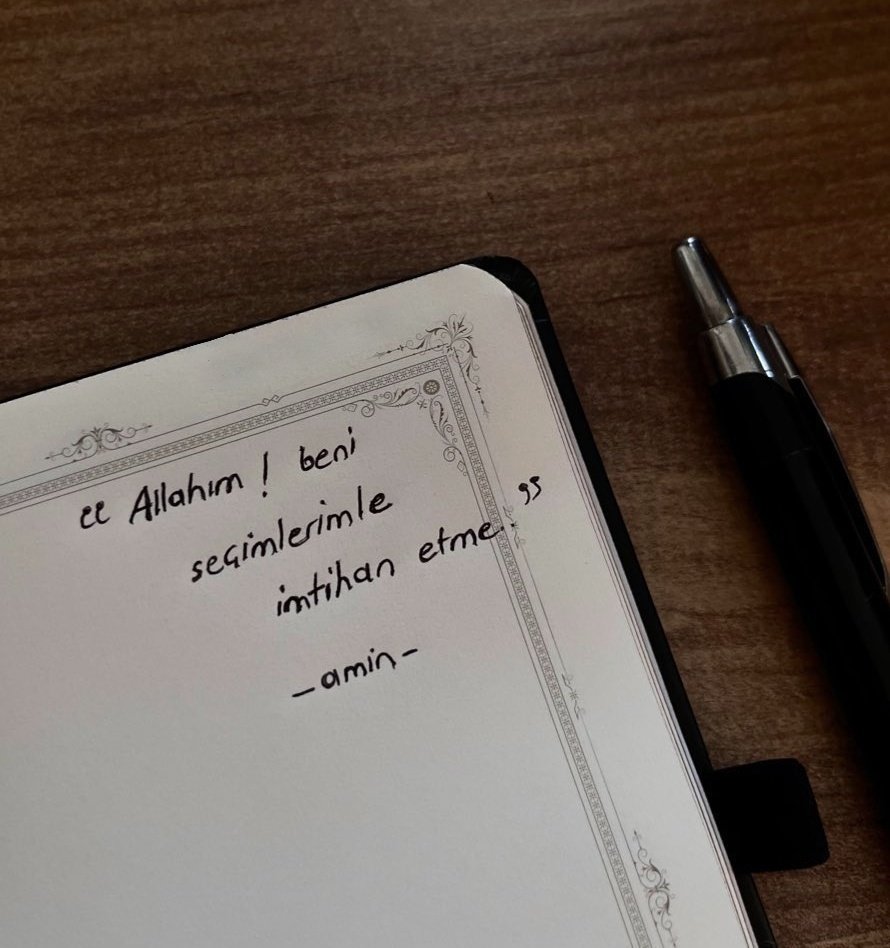 “ Allahım ! beni
seçimlerimle
imtihan etme.. ”
- amin -